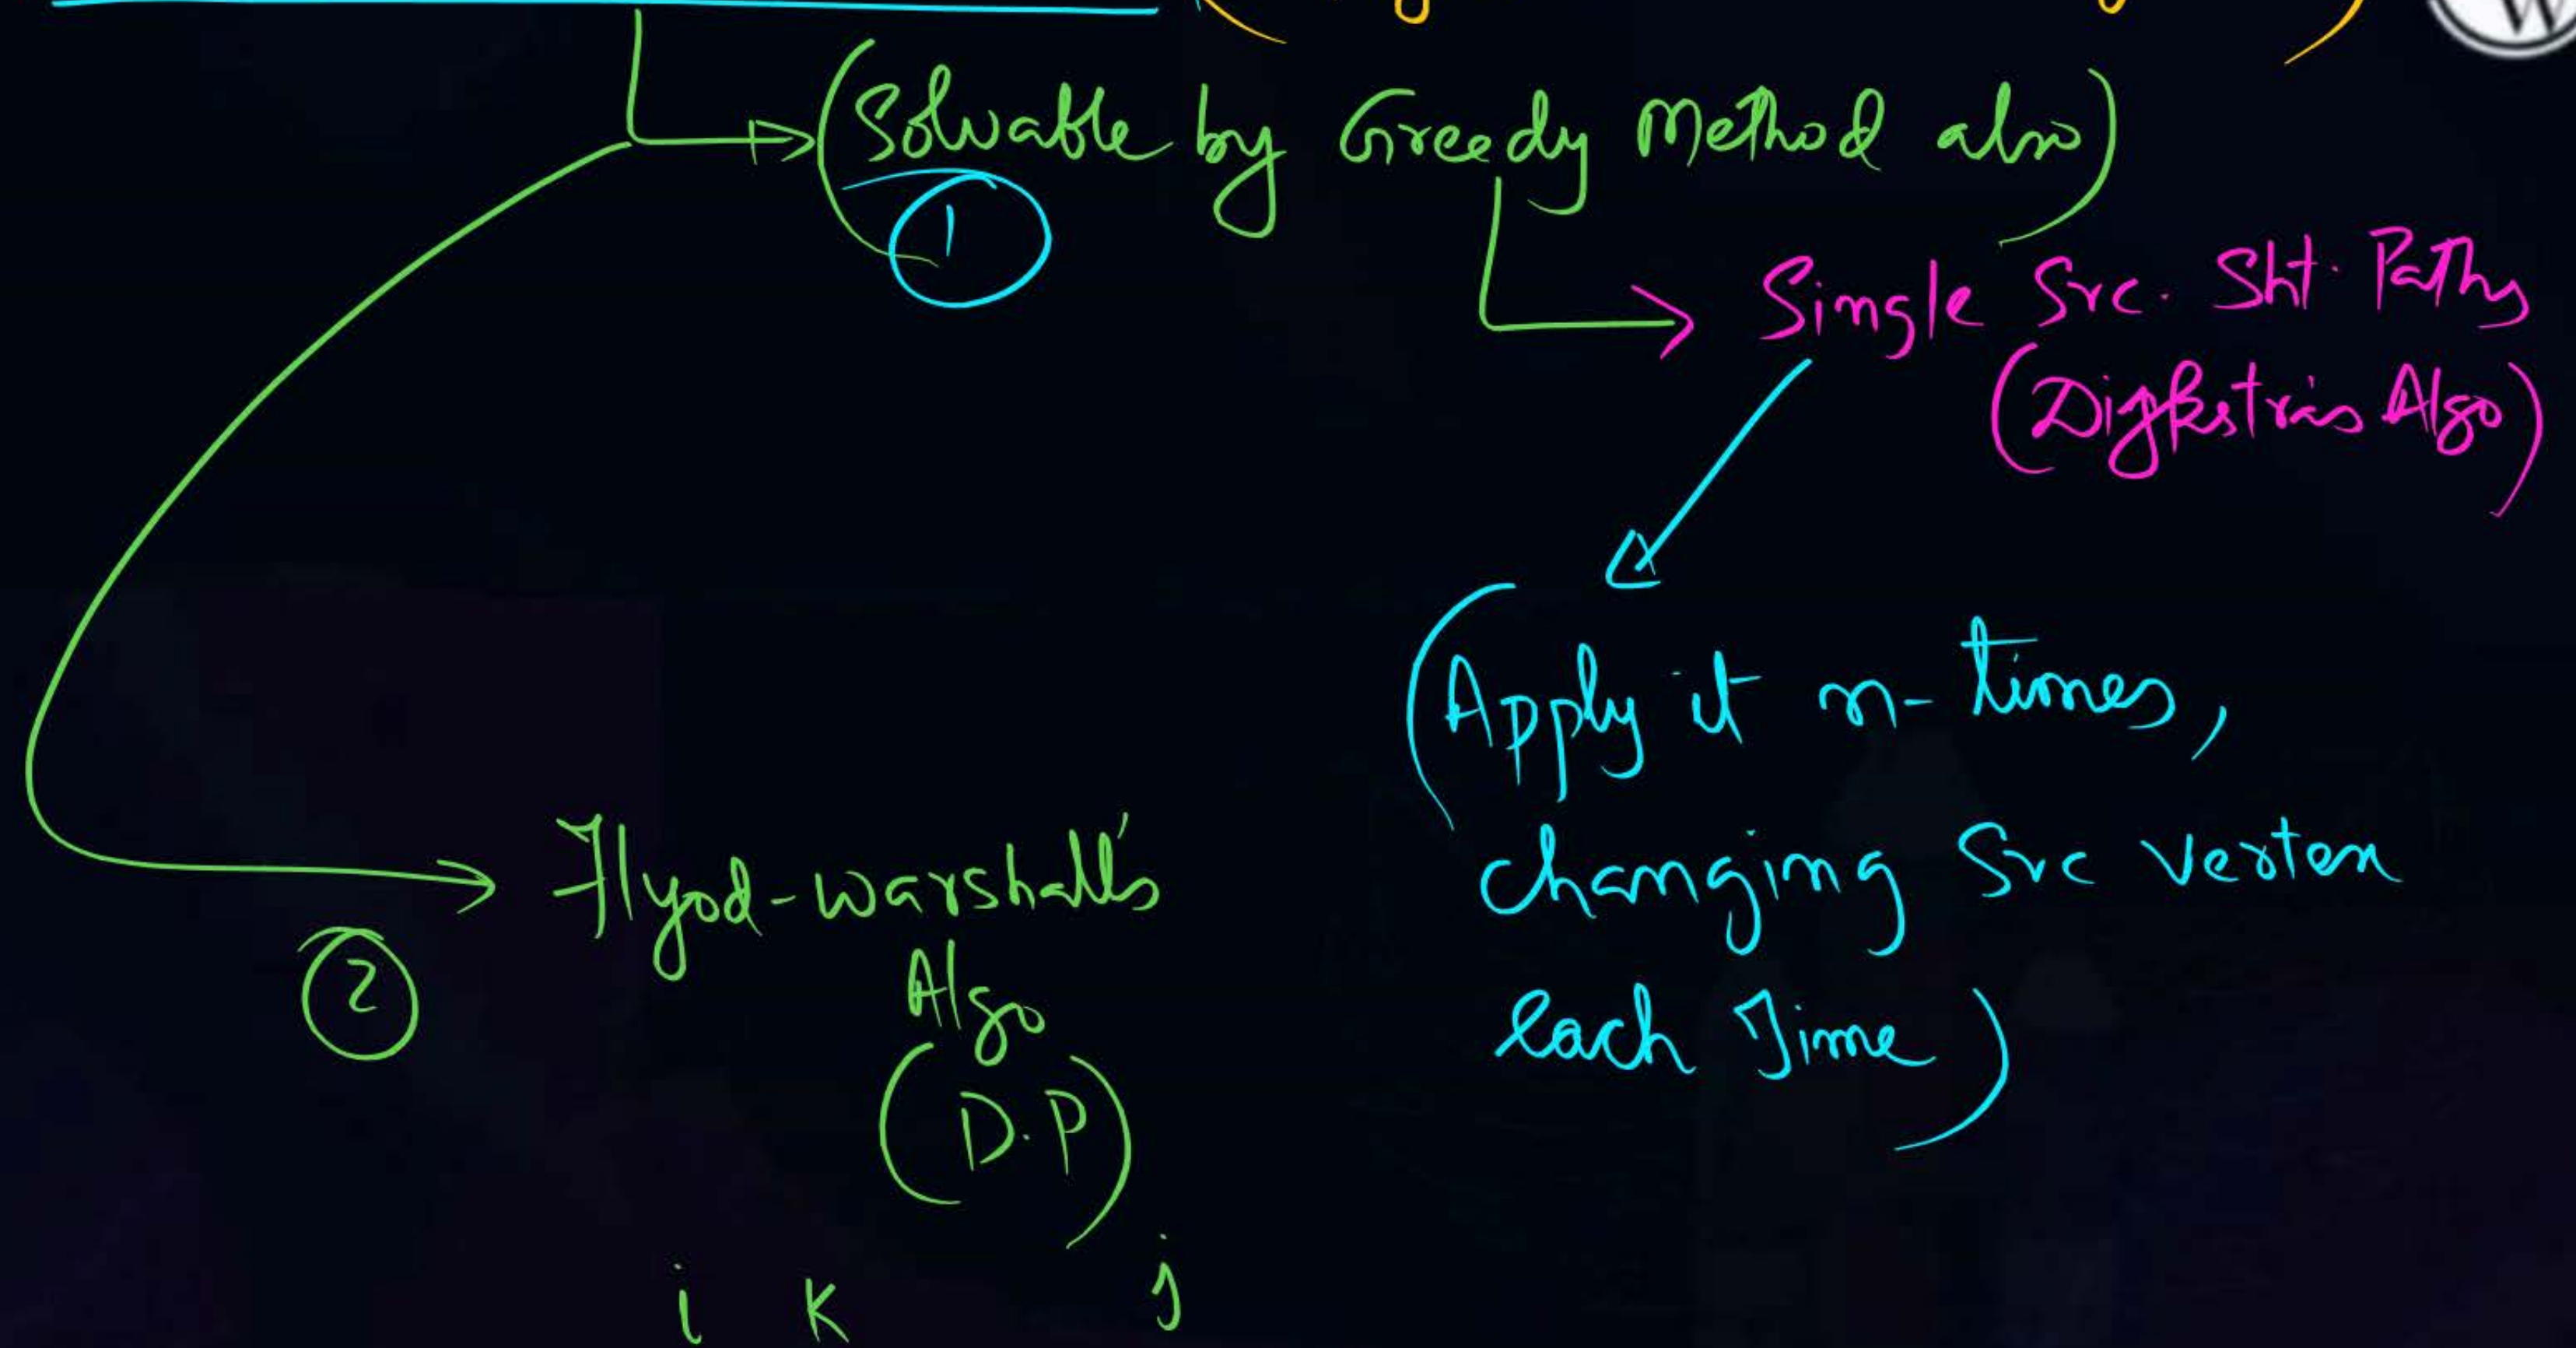 (Solvable by Greedy Method also)
1
Single Src. Sht. Paths
(Digkstra's Algo)
(Apply it n-times,
changing Src Vertex
each Time)
Flyod-Warshall's
2
Algo
(D.P)
i K j